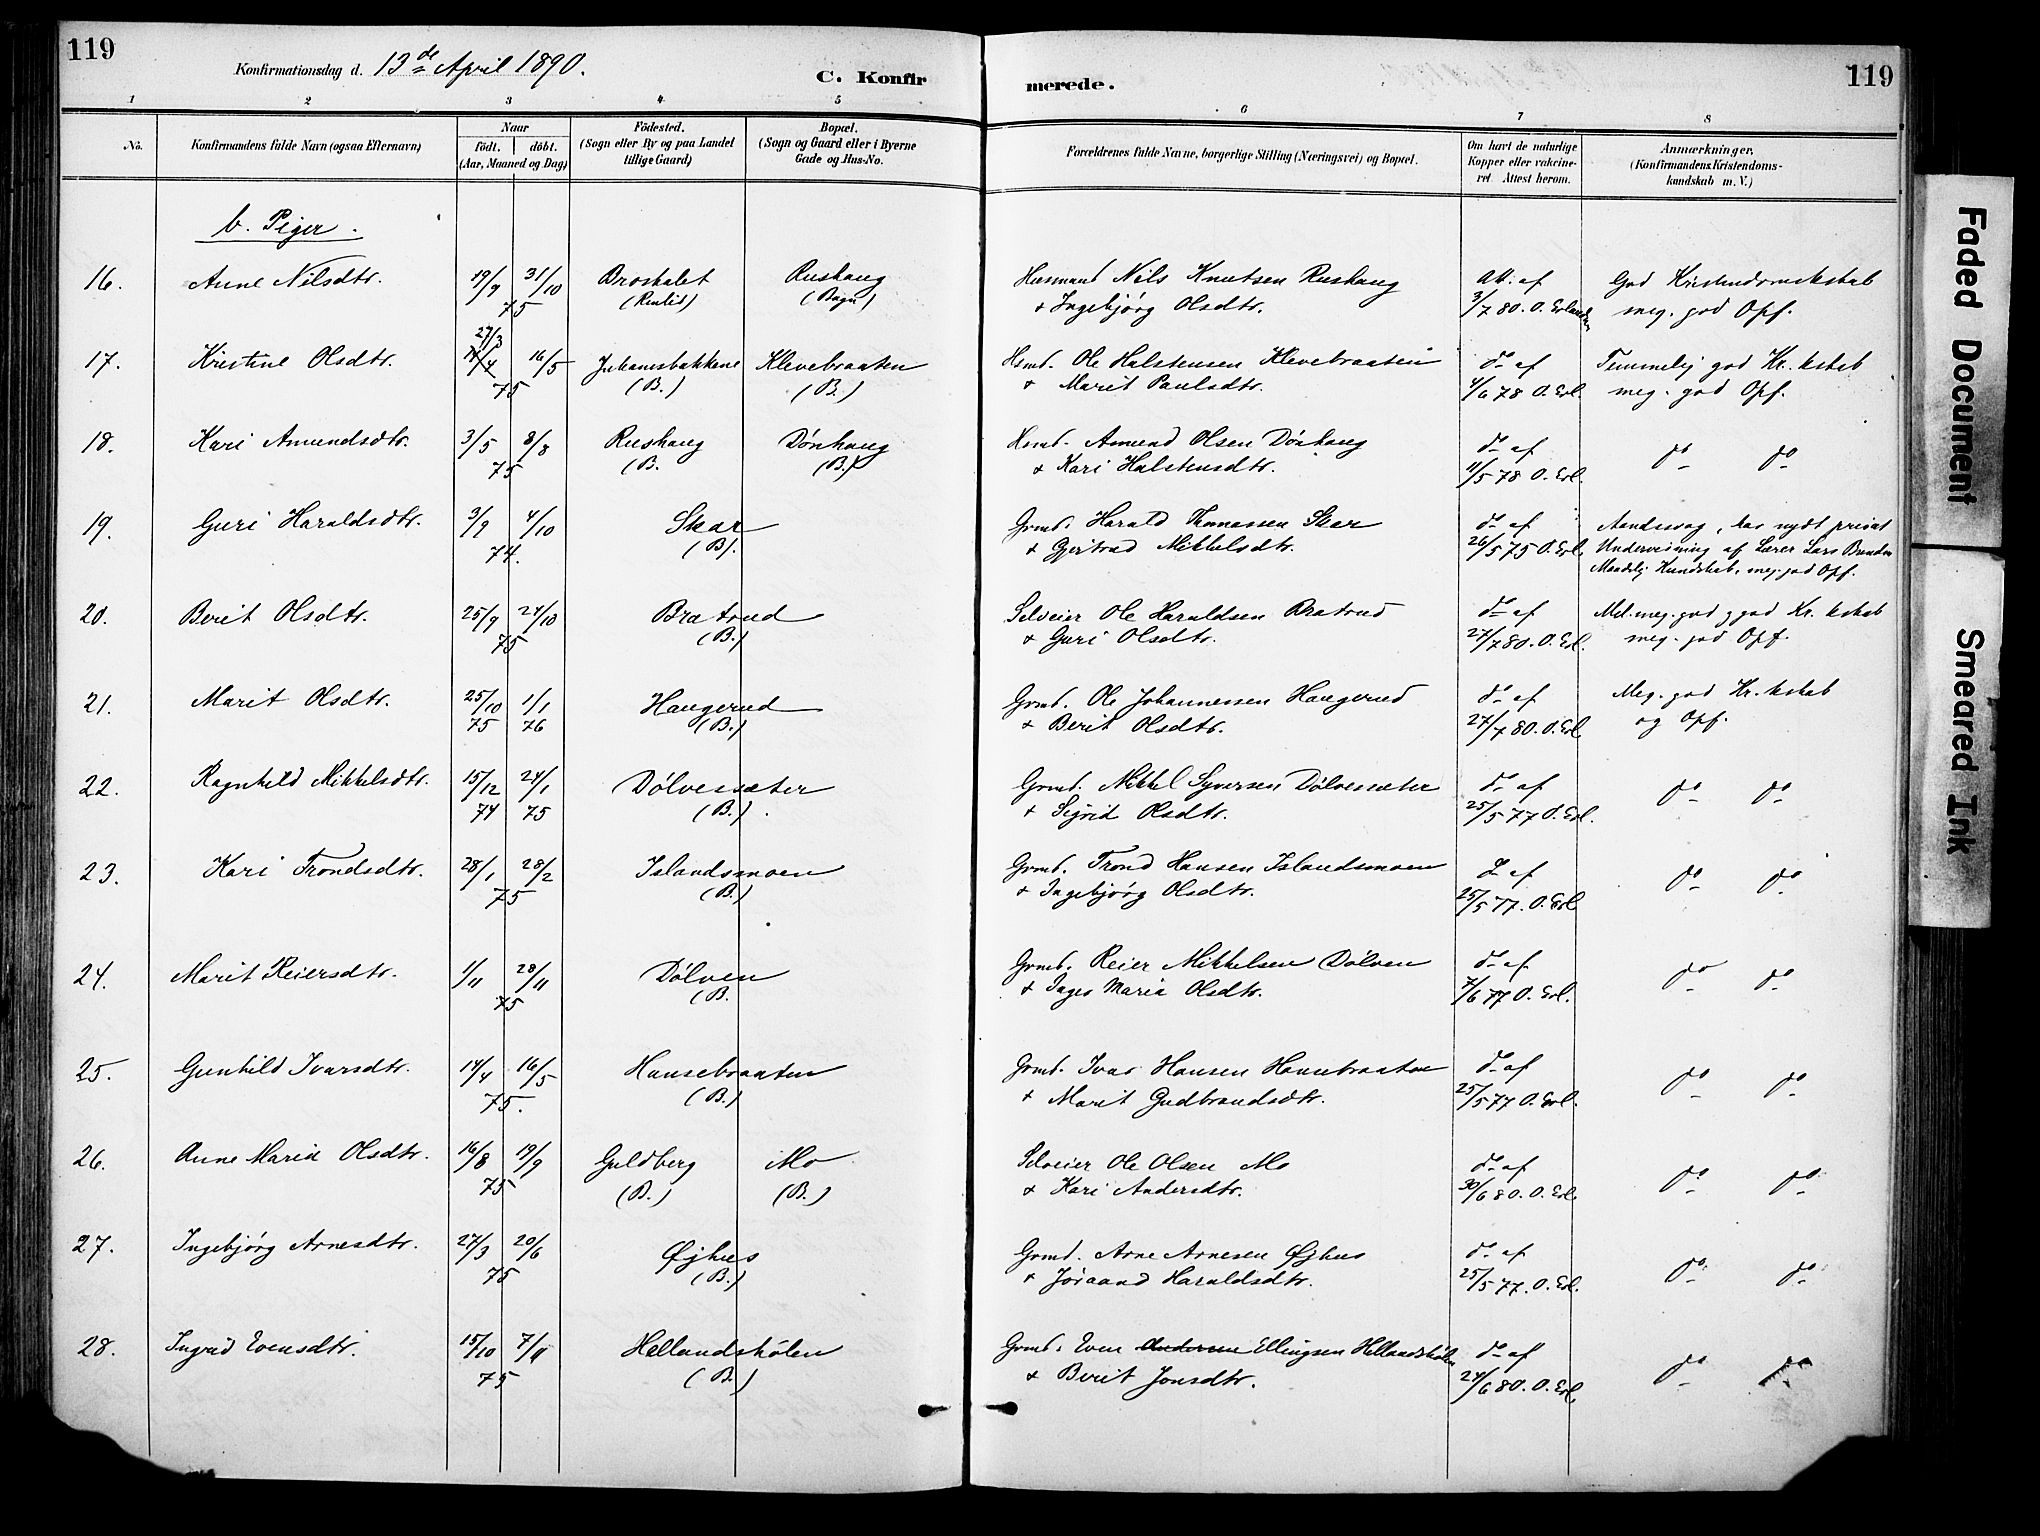 119
Konfirmationsdag d. 13de April 1890.
C. Konfir
merede.
119
1 2 3 4 5 6 7 8
No.
Konfirmandens fulde Navn (ogsaa Efternavn)
Naar
födt. döbt.
(Aar, Maaned og Dag)
Födested.
(Sogn eller By og paa Landet
tillige Gaard)
Bopæl.
(Sogn og Gaard eller i Byerne
Gade og Hus-No.
Forældrenes fulde Navne, borgerlige Stilling (Næringsvei) og Bopæl.
Om havt de naturlige
Kopper eller vakcine-
ret. Attest herom.
Anmærkninger,
(Konfirmandens Kristendoms-
kundskab m. V.)
b. Piger.
16. Anne Nilsdtr. 19/9 31/10 Broskalet Rushaug Husmand Nils Knutsen Rushaug Att. af God Kristendomskskab
75 (Bagn) + Ingebjørg Olsdtr. 3/7 80. O. Erlandsen meg. god Opf.
27/3
17. Kristine Olsdtr. 14/4 16/5 Johannesbakkene Klevebraaten Hsmd. Ole Halstensen Klevebraaten do af Temmelig god Kr. kskab
75 (B.) (B.) + Marit Paulsdtr. 4/6 78 O. Erl. meg. god Opf.
18. Kari Amundsdtr. 3/5 8/8 Rushaug Dönhaug Hsmd. Amund Olsen Dönhaug do af do do
75 (B. (B.) + Kari Halstensdtr. 11/5 78 O. Erl.
19. Guri Haraldsdtr. 3/9 4/10 Skar Grmd. Harald Thomassen Skar do af Aandssvag, har nydt privat
74. (B). + Gjertrud Mikkelsdtr. 26/5 75 O. Erl. Undervisning af Lærer Lars
Kundskab, meg. god Opf.
20. Berit Olsdtr. 25/9 24/10 Bratrud Selveier Ole Haraldsen Bratrud do af Mel. meg. god og god Kr. kskab
75 (B.) + Guri Olsdtr. 27/7 80. O. Erl. meg. god Opf.
21. Marit Olsdtr. 25/10 1/1 Haugerud Grmd. Ole Johannessen Haugerud do af Meg. god Kr. kskab
75 76 (B.) + Berit Olsdtr. 27/7 80. O. Erl. og Opf.
22. Ragnhild Mikkelsdtr. 15/12 24/1 Dölvesæter Grmd. Mikkel Syversen Dölvesæter do af do do
74 75 (B.) + Sigrid Olsdtr. 25/5 77 O. Erl.
23. Kari Trondsdtr. 28/1 28/2 Islandsmoen Grmd. Trond Hansen Islandsmoen do af do do
75 (B.) + Ingebjörg Olsdtr. 25/5 77. O. Erl.
24. Marit Reiersdtr. 1/11 28/11 Dölven Grmd. Reier Mikkelsen Dölven do af do do
75 (B. + Inger Maria Olsdtr. 7/6 77 O. Erl.
25. Gunhild Ivarsdtr. 14/4 16/5 Hansebraaten Grmd. Ivar Hansen Hansebraaten do af do do
75. (B.) + Marit Gudbrandsdtr. 25/5 77 O. Erl.
26. Anne Maria Olsdtr. 16/8 19/9 Guldberg Mo Selveier Ole Olsen Mo do af do do
75 (B.) (B.) + Kari Andersdtr. 30/6 80. O. Erl.
27. Ingebjörg Arnesdtr. 27/3 20/6 Øjhus Grmd. Arne Arnesen Øjhus do af do do
75 (B.) + Jöraand Haraldsdtr. 25/5 77. O. Erl.
28. Ingrid Evensdtr. 15/10 7/11 Hellandshölen Grmd. Even Andersen Ellingsen Hellandshölen do af do do
75 (B.) + Berit Jonsdtr. 24/6 80. O. Erl.
Faded Document
Smeared Ink